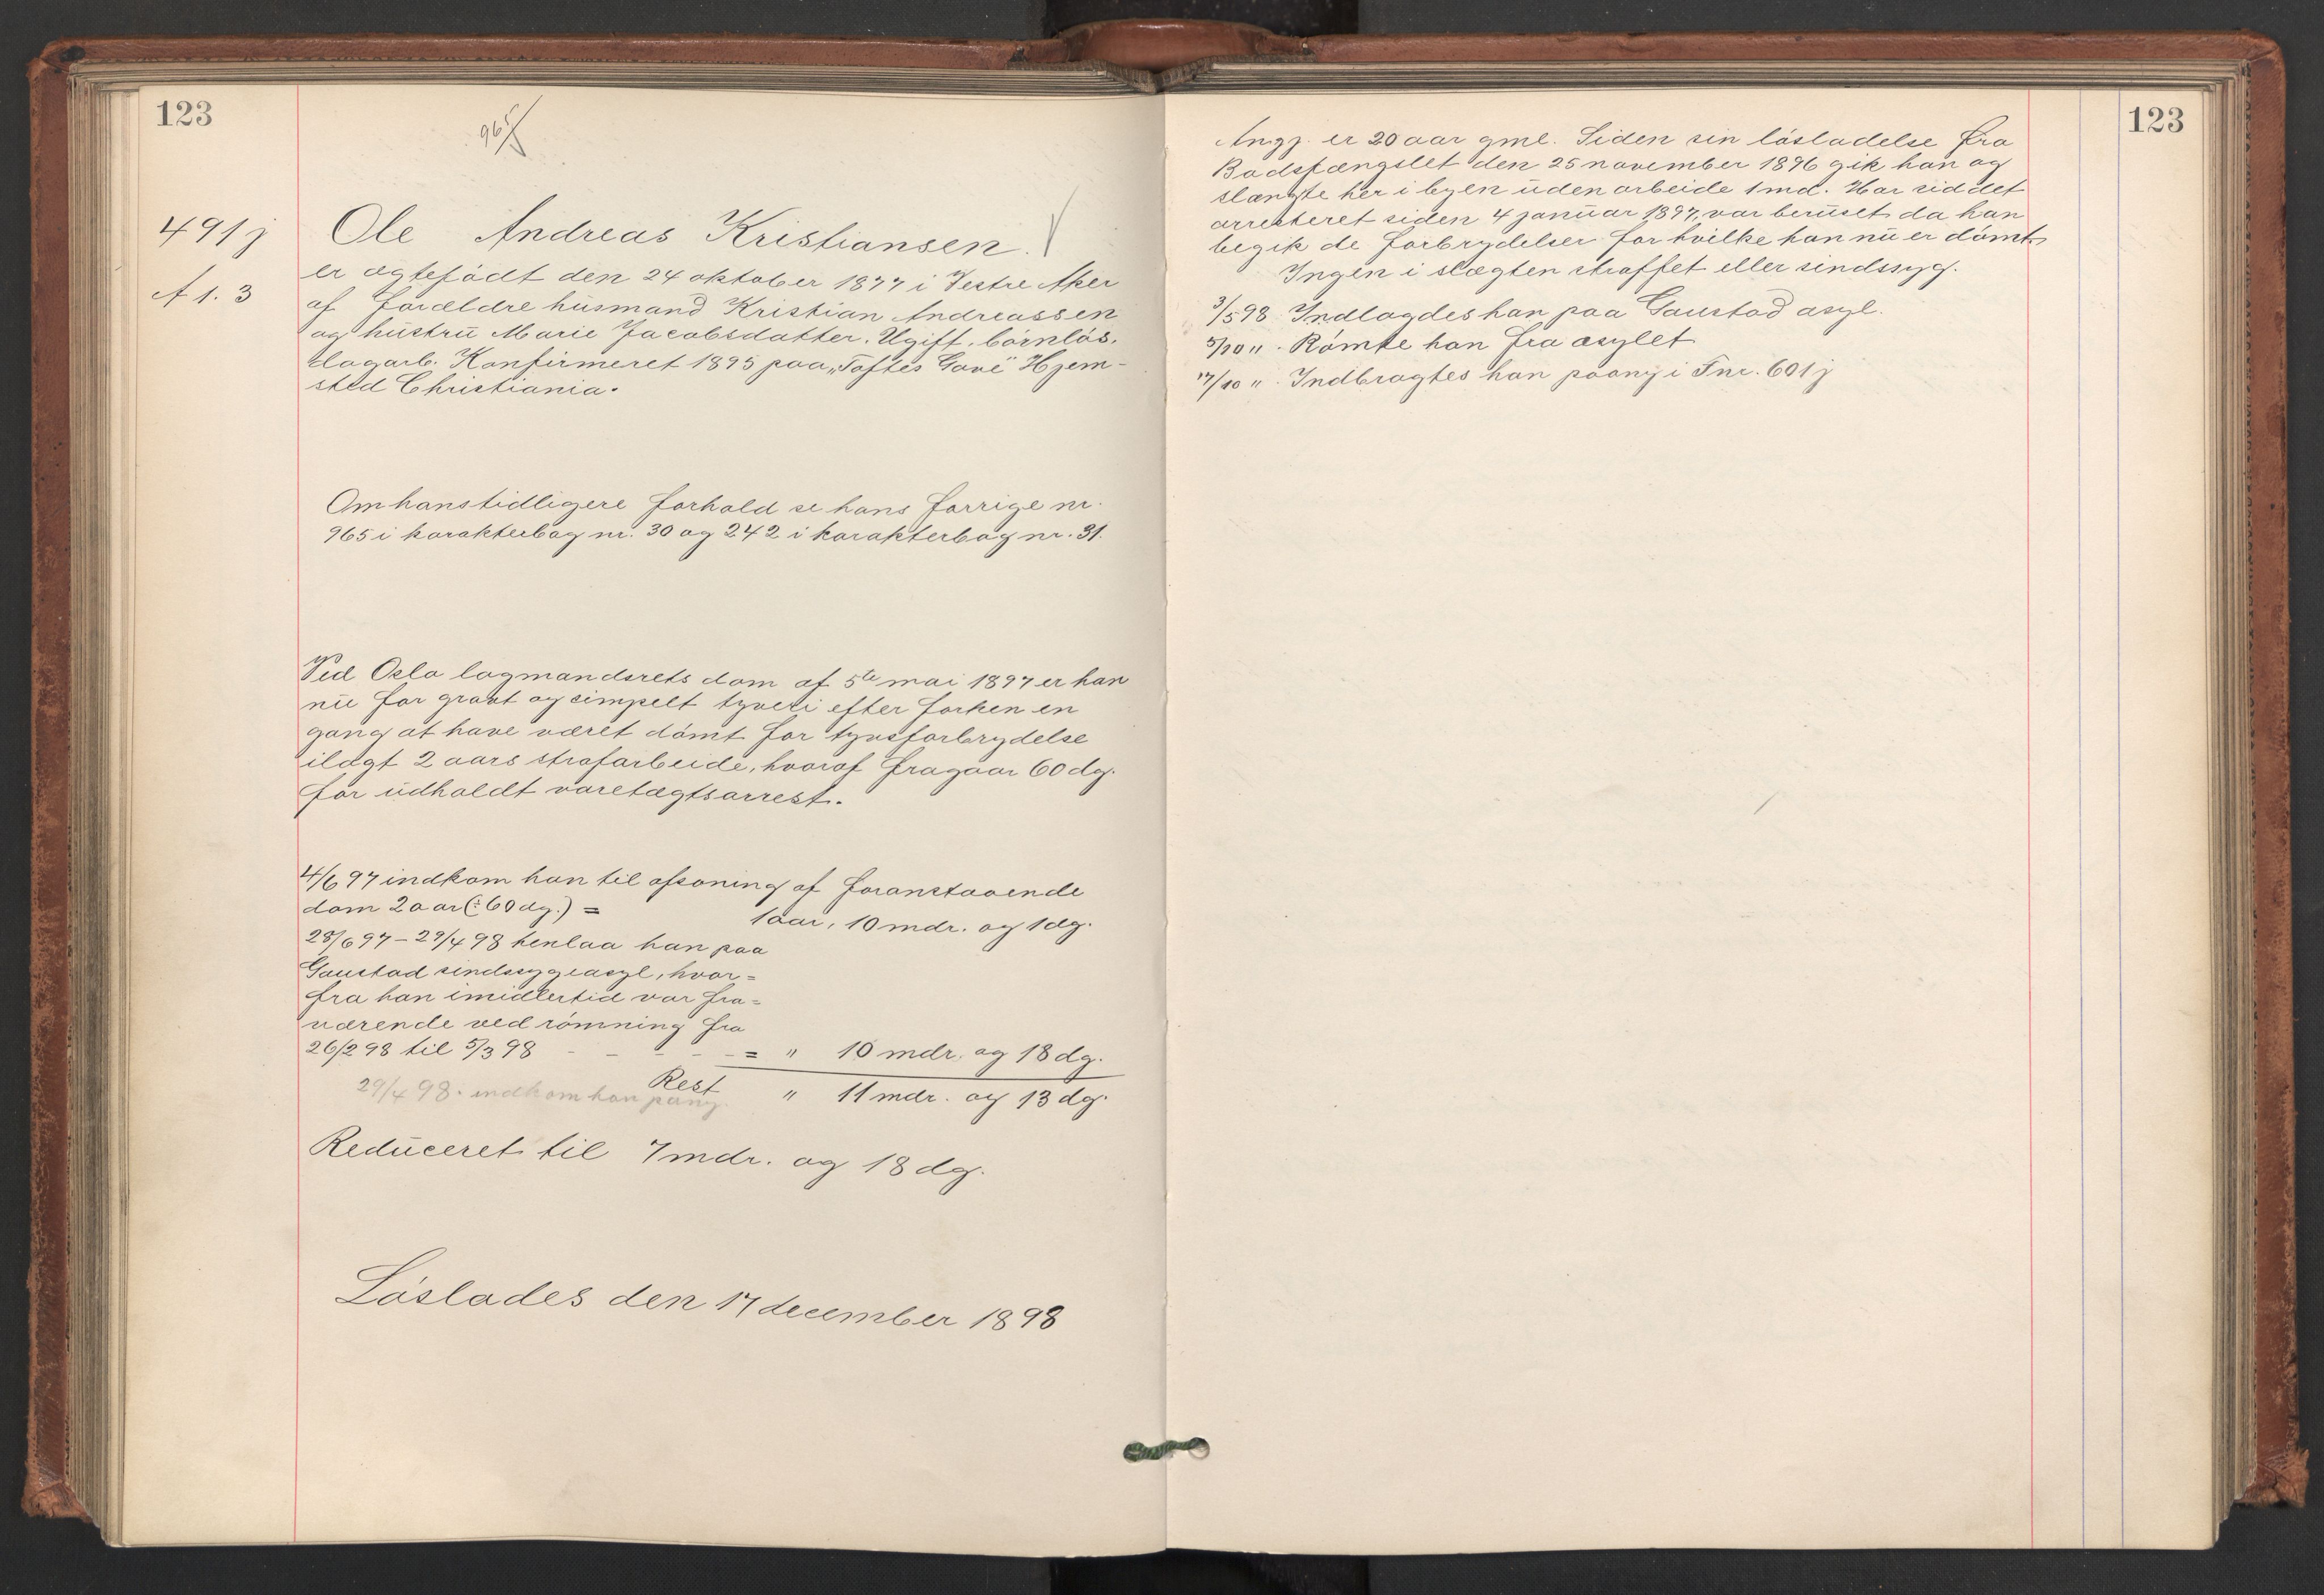 123
965
491 j
A 1. 3
Ole Andreas Kristiansen.
er ægtefödt den 24 oktober 1877 i Vestre Aker
af forældre husmand Kristian Andreassen
og hustru Marie Jacobsdatter. Ugift, börnlös,
dagarb. Konfirmeret 1895 paa „Toftes Gave" Hjem-
sted Christiania.
Om hans tidligere forhold se hans forrige nr.
965 i karakterbog nr. 30 og 242 i karakterbog nr. 31.
Ved Oslo lagmandsrets dom af 5te mai 1897 er han
nu for grovt og simpelt tyveri efter forhen en
gang at have været dömt for tyvsforbrydelse
ilagt 2 aars strafarbeide, hvoraf fragaar 60 dg.
for udholdt varetægtsarrest.
4/6 97 indkom han til afsoning af foranstaaende
dom 2 aar (÷ 60 dg.) = 1 aar, 10 mdr. og 1 dg.
28/6 97 – 29/4 98 henlaa han paa
Gaustad sindssygeasyl, hvor=
fra han imidlertid var fra=
værende ved römning fra
26/2 98 til 5/3 98 - - - - - = " 10 mdr. og 18 dg.
Rest " 11 mdr. og 13 dg.
29/4 98. indkom han pany
Reduceret til 7 mdr. og 18 dg.
Löslades den 17 december 1898
123
Angj. er 20 aar gml. Siden sin lösladelse fra
Bodsfængslet den 25 november 1896 gik han og
slængte her i byen uden arbeide 1 md. Har siddet
arresteret siden 4 januar 1897, var beruset da han
begik de forbrydelser for hvilke han nu er dömt.
Ingen i slægten straffet eller sindssyg.
3/5 98 Indlagdes han paa Gaustad asyl.
5/10 " . Römte han fra asylet
17/10 " . Indbragtes han paany i Fnr. 601 j